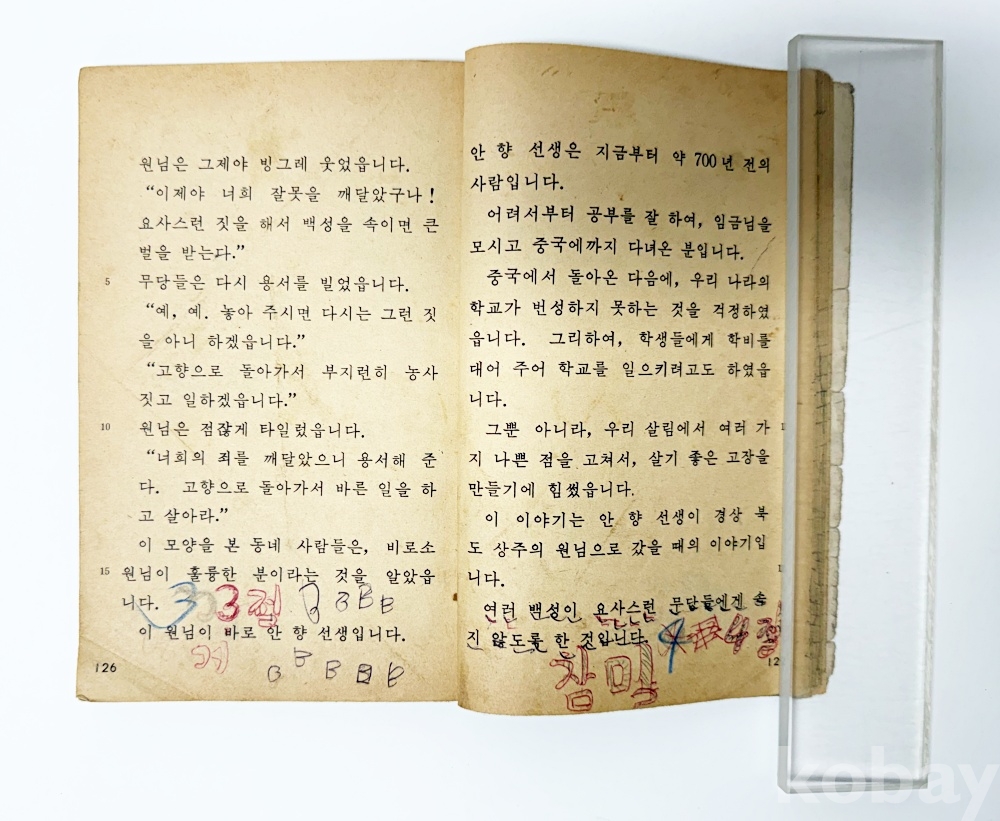 원님은 그제야 빙그레 웃었읍니다.
“이제야 너희 잘못을 깨달았구나!
요사스런 짓을 해서 백성을 속이면 큰
벌을 받는다.”
5 무당들은 다시 용서를 빌었읍니다.
“예, 예. 놓아 주시면 다시는 그런 짓
을 아니 하겠읍니다.”
“고향으로 돌아가서 부지런히 농사
짓고 일하겠읍니다.”
10 원님은 점잖게 타일렀읍니다.
“너희의 죄를 깨달았으니 용서해 준
다. 고향으로 돌아가서 바른 일을 하
고 살아라.”
이 모양을 본 동네 사람들은, 비로소
15 원님이 훌륭한 분이라는 것을 알았읍
니다. 3 3 B B B B
이 원님이 바로 안 향 선생입니다.
B B B B B
126
안 향 선생은 지금부터 약 700년 전의
사람입니다.
어려서부터 공부를 잘 하여, 임금님을
모시고 중국에까지 다녀온 분입니다.
중국에서 돌아온 다음에, 우리 나라의
학교가 번성하지 못하는 것을 걱정하였
읍니다. 그리하여, 학생들에게 학비를
대어 주어 학교를 일으키려고도 하였읍
니다.
그뿐 아니라, 우리 살림에서 여러 가
지 나쁜 점을 고쳐서, 살기 좋은 고장을
만들기에 힘썼읍니다.
이 이야기는 안 향 선생이 경상 북
도 상주의 원님으로 갔을 때의 이야기입
니다.
백성이 요사스런 무당들에겐 속
지 않도록 한 것입니다. 4
참밀
12
kobay